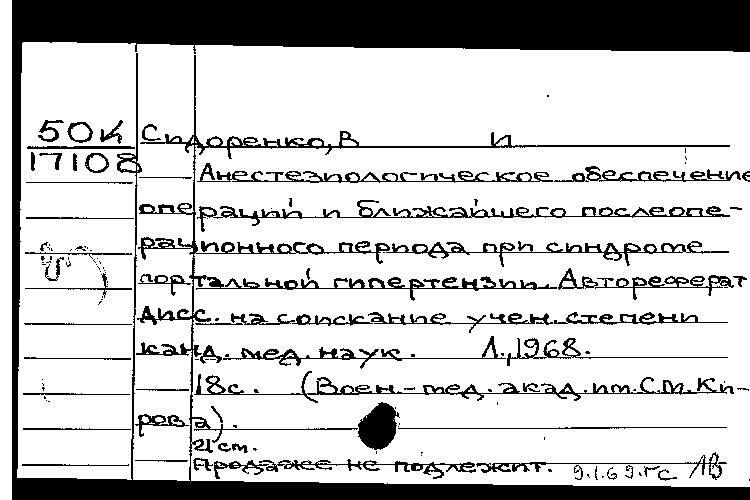 50К
17108
Сидоренко, В И
Анестезиологическое обеспечение
операций и ближайшего послеопе-
рационного периода при синдроме
портальной гипертензии. Автореферат
дисс. на соискание учен. степени
канд. мед. наук. Л., 1968.
18с. (Воен.-мед. акад. им. С.М. Ки-
рова).
21 см.
Продаже не подлежит. 9.1.69.